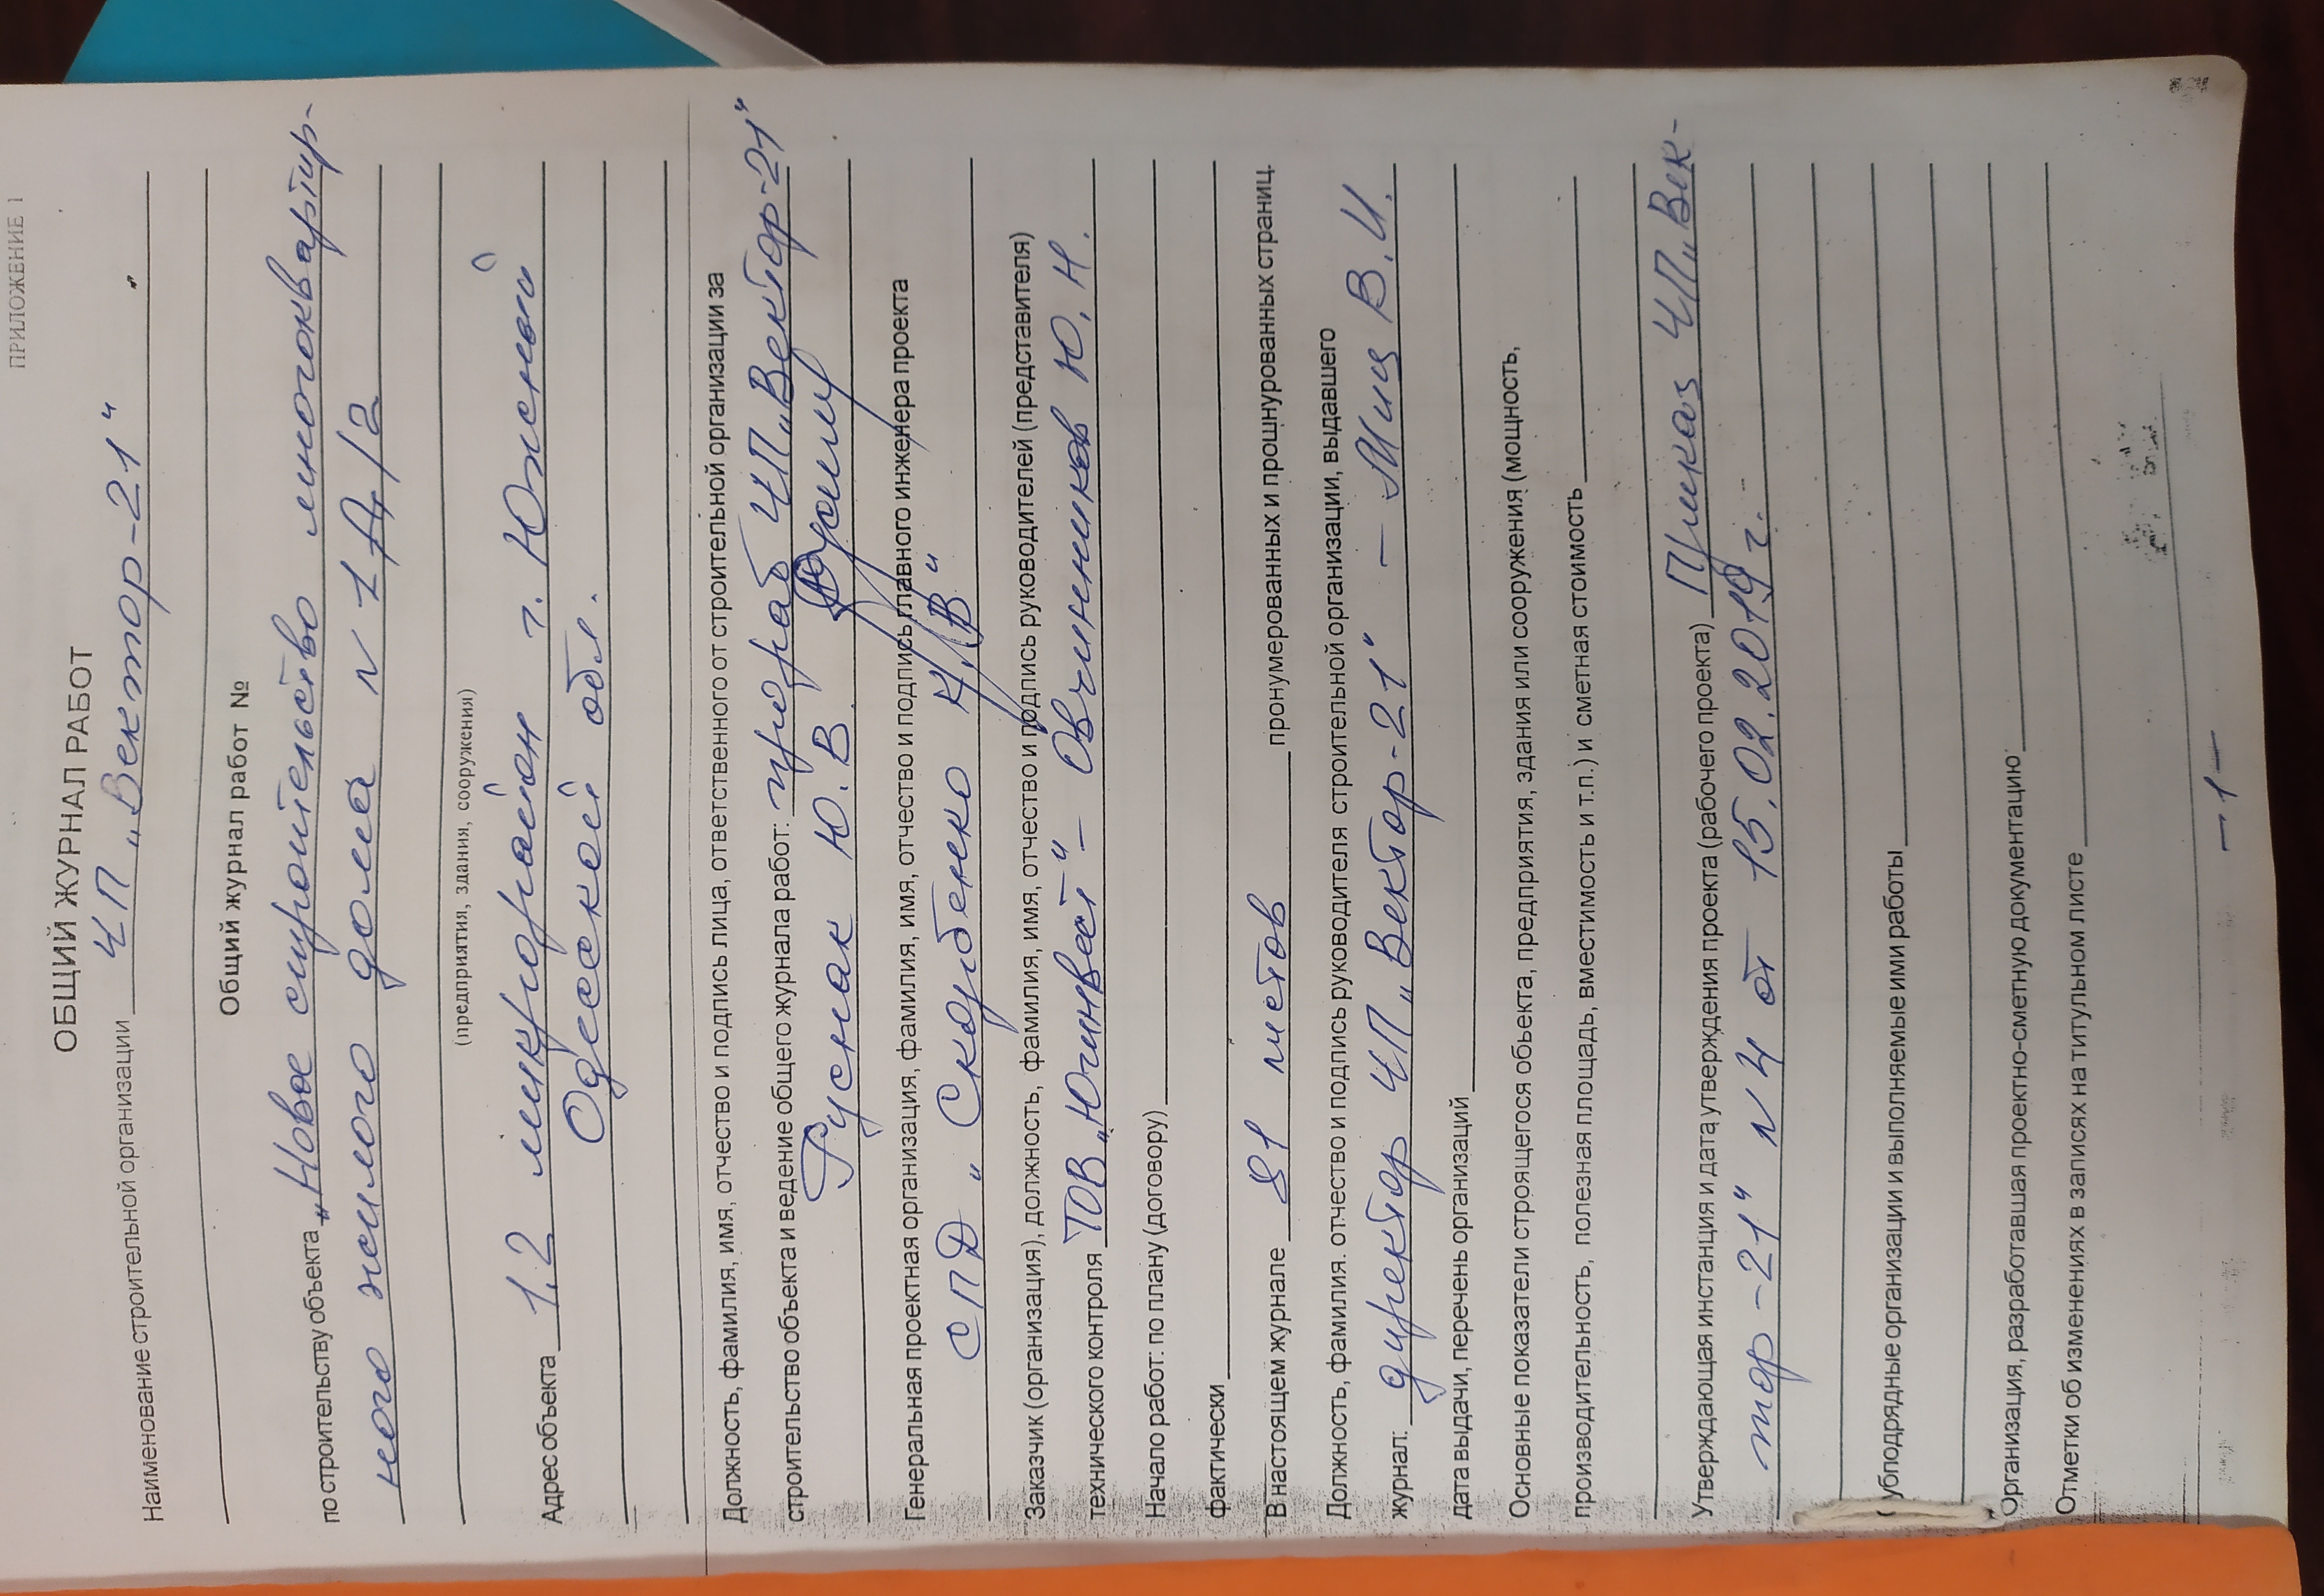 ПРИЛОЖЕНИЕ 1
ОБЩИЙ ЖУРНАЛ РАБОТ
Наименование строительной организации ЧП „Вектор-21"
Общий журнал работ №
по строительству объекта „Новое строительство многоквартир-
ного жилого дома N 1 Д/2
(предприятия, здания, сооружения)
Адрес объекта 1,2 микрорайон г. Южный
Одесской обл.
Должность, фамилия, имя, отчество и подпись лица, ответственного от строительной организации за
строительство объекта и ведение общего журнала работ: прораб ЧП „Вектор-21"
Руснак Ю.В
Генеральная проектная организация, фамилия, имя, отчество и подпись главного инженера проекта
СПД „Скорбенко Н.В"
Заказчик (организация), должность, фамилия, имя, отчество и подпись руководителей (представителя)
технического контроля ТОВ „Югинвест" - Овчинников Ю.Н.
Начало работ: по плану (договору)
фактически
В настоящем журнале 81 листов пронумерованных и прошнурованных страниц.
Должность, фамилия. отчество и подпись руководителя строительной организации, выдавшего
журнал: директор ЧП „Вектор-21" - Миц В.И.
дата выдачи, перечень организаций
Основные показатели строящегося обьекта, предприятия, здания или сооружения (мощность,
производительность, полезная площадь, вместимость и т.п.) и сметная стоимость
Утверждающая инстанция и дата утверждения проекта (рабочего проекта) Приказ ЧП „Век-
тор-21" N 4 от 15.02.2019 г.
убподрядные организации и выполняемые ими работы
Организация, разработавшая проектно-сметную документацию
Отметки об изменениях в записях на титульном листе
-1-